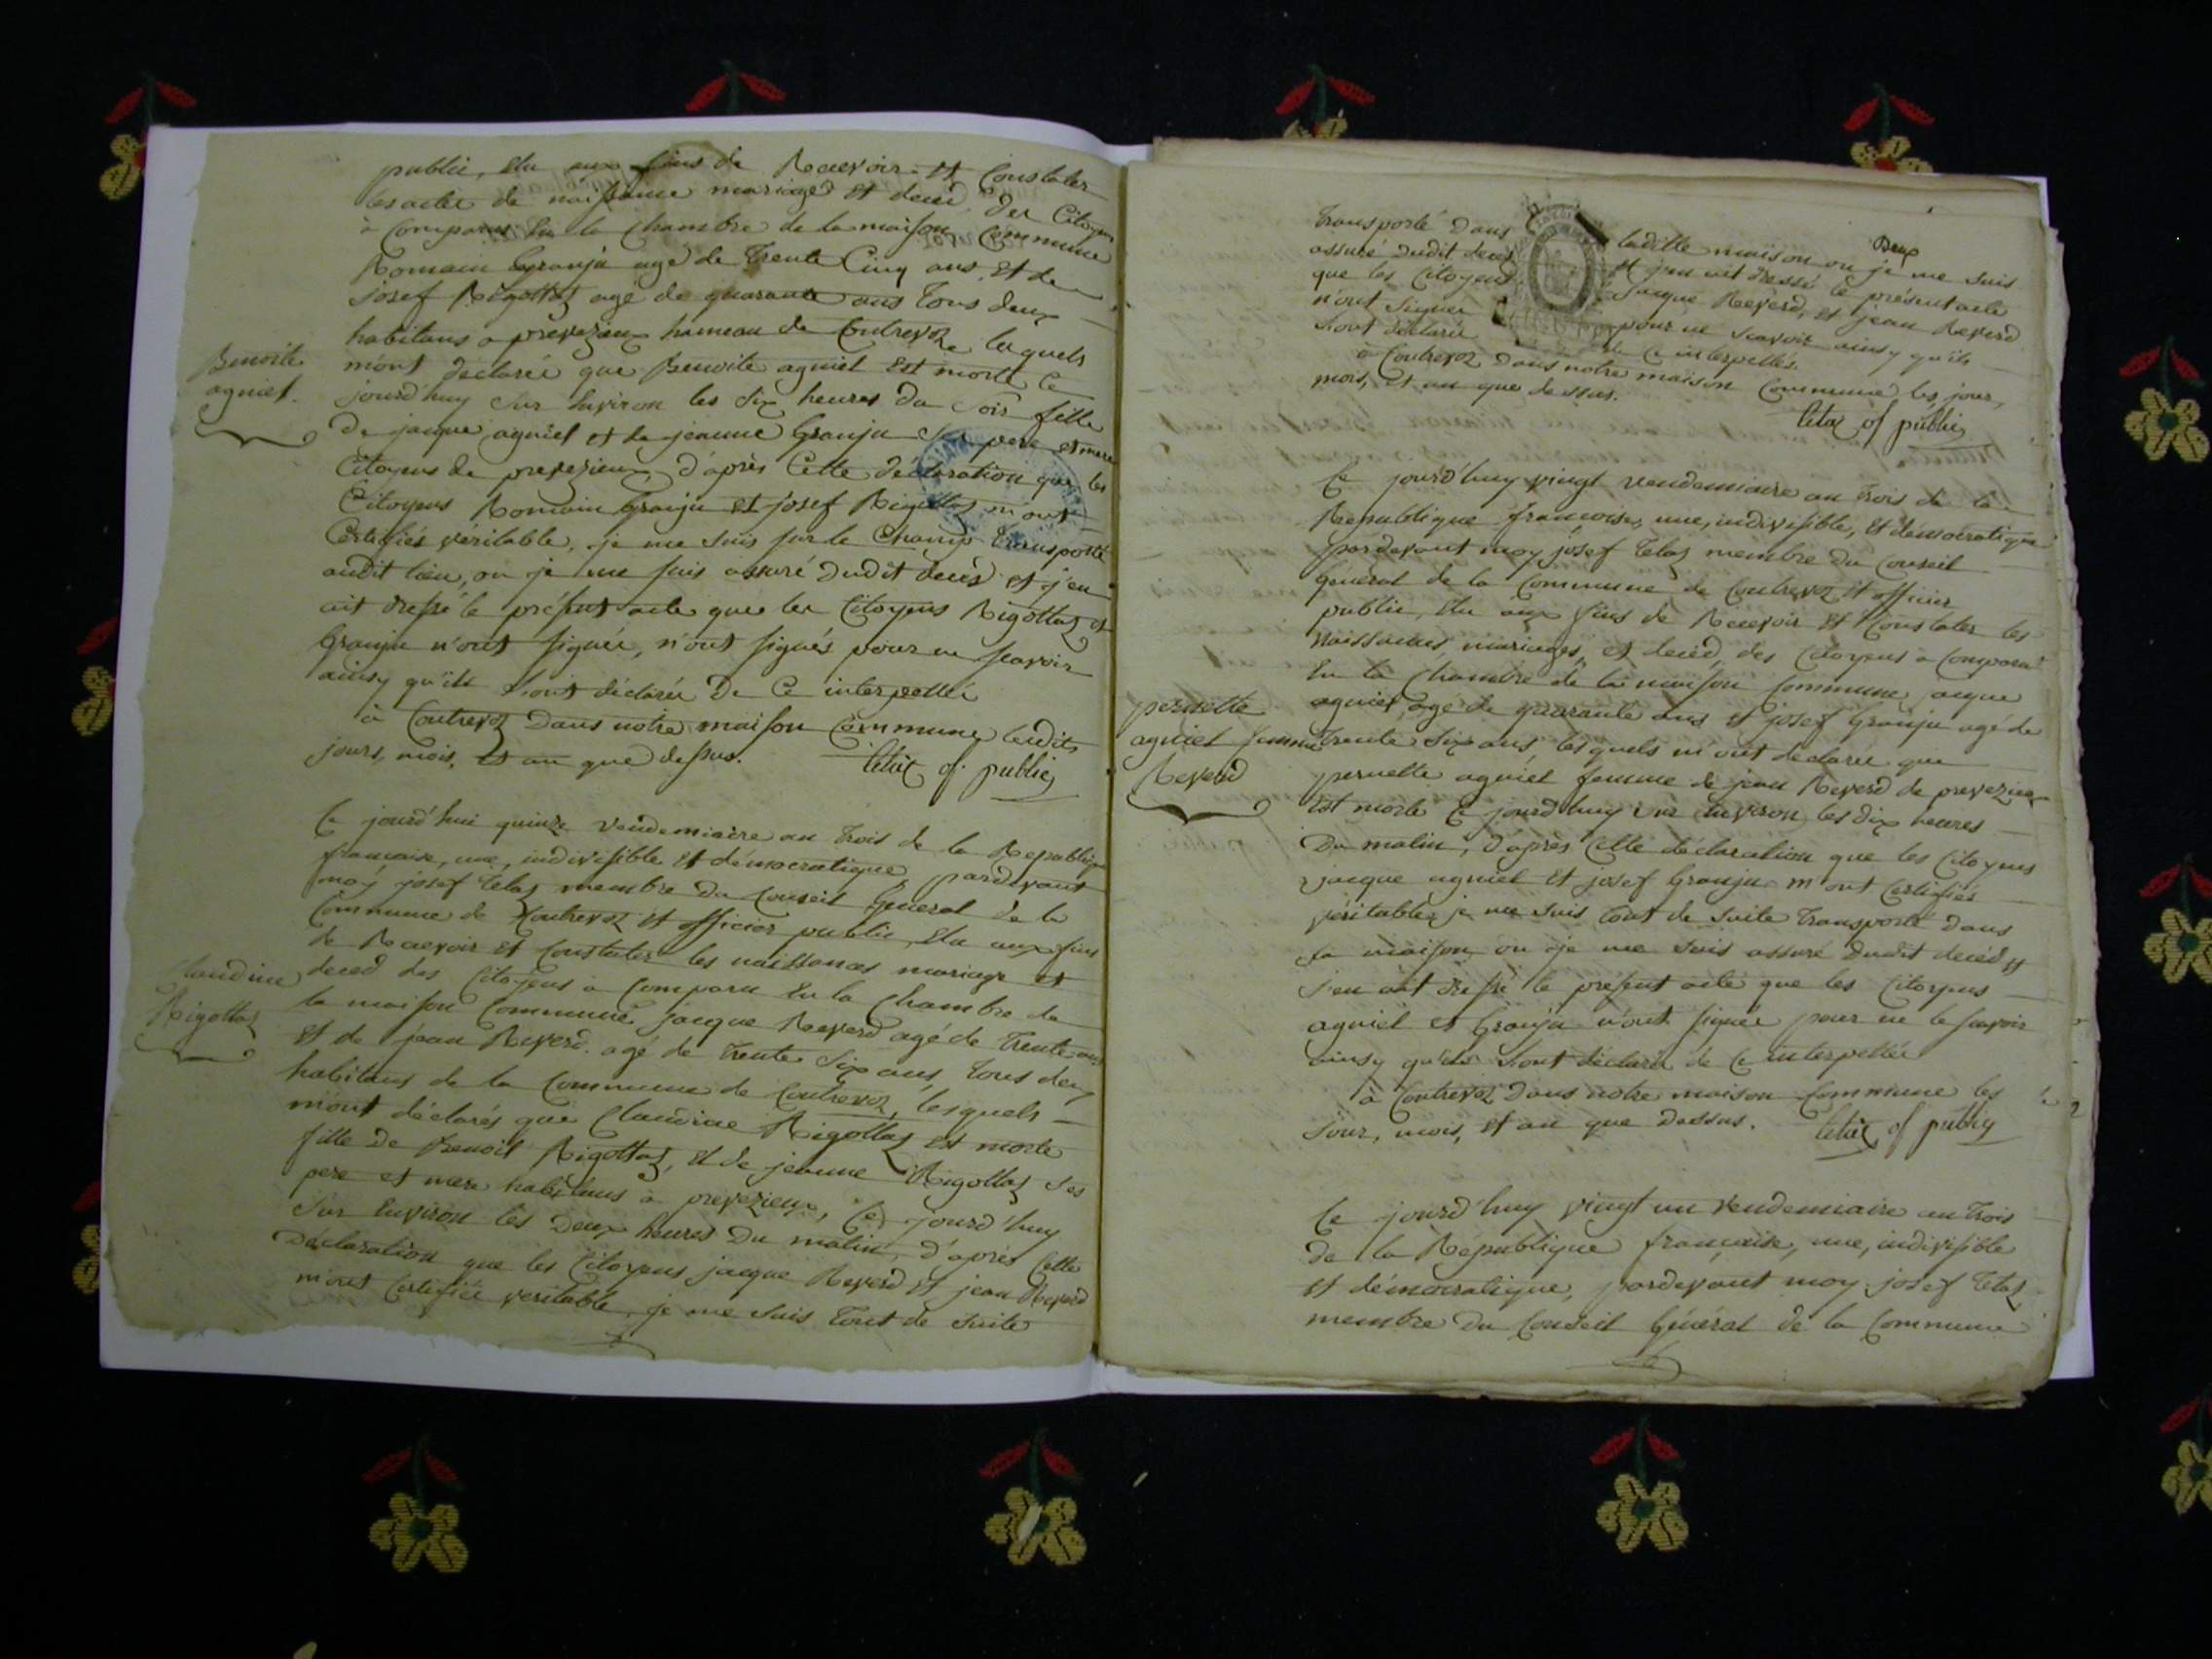 public, elu aux fins de Recevoir et Constater
les actes de naissance mariages et deced des Citoyens
à Comparus en la Chambre de la maison Commune
Romain Granju agé de Trente Cinq ans, et de
josef Rigottaz agé de quarante ans tous deux
habitans a prevezieux hameau de Contrevoz lesquels
m'ont declarée que Benoite agniel est morte ce
jourd'huy sur environ les six heures du soir fille
De jacque agniel et de jeanne Granju ses pere et mere
Citoyens de prevezieux, d'après Cette déclaration que les
Citoyens Romain Granju et josef Rigottaz m'ont
Certifiés véritable, je me suis sur le Champ transporté
audit lieu, ou je me suis assuré dudit decès et j'en
ait dressé le présent acte que les Citoyens Rigottaz et
Granju n'ont signée, n'ont signés pour ne scavoir
ainsy qu'ils l'ont déclarée De Ce interpellé
à Contrevoz Dans notre maison Commune lesdits
jours, mois, et an que dessus. of public
Benoite
agniel.
Ce jourd'hui quinze vendemiaire an trois de la Republique
francaise, une, indivisible et démocratique pardevant
moy josef Tetaz membre du Conseil Général de la
Commune de Contrevoz et officier public, elu aux fins
de Recevoir et Constater les naissances mariage et
deced des Citoyens a Comparu en la Chambre de
la maison Commune jacque Reverd agé de Trente ans
et de jean Reverd agé de Trente six ans, tous deux
habitans de la Commune de Contrevoz, lesquels
m'ont déclarés que Claudine Rigottaz est morte
fille de Benoit Rigottaz, et de jeanne Rigottaz ses
pere et mere habitans à prevezieux, Ce jourd'huy
sur environ les Deux heures Du matin, d'après Cette
Déclaration que les Citoyens jacque Reverd et jean Reverd
m'ont Certifiée veritable, je me suis tout de suite
Claudine
Rigottaz
Deux
transporté Dans laditte maison ou je me suis
assuré dudit decès et j'en ait dressé le présent acte
que les Citoyens Jacque Reverd, et jean Reverd
n'ont signée pour ne scavoir ainsy qu'ils
l'ont déclarée de Ce interpellés.
à Contrevoz Dans notre maison Commune les jour,
mois, et an que dessus.
of public
Ce jourd'huy vingt vendemiaire an trois de la
Republique francoise, une, indivisible, et démocratique
pardevant moy josef Tetaz membre du Conseil
Général de la Commune de Contrevoz et officier
public, elu aux fins de Recevoir et Constater les
naissances, mariages, et deced, des Citoyens a Comparu
en la Chambre de la maison Commune jacque
agniel agé de quarante ans et josef Granju agé de
trente six ans, lesquels m'ont declarée que
pernette agniel femme de jean Reverd de prevezieux
est morte Ce jourd'huy sur environ les dix heures
Du matin, d'après Cette déclaration que les Citoyens
jacque agniel et josef Granju m'ont Certifiés
véritable, je me suis tout de suite transporté Dans
sa maison, ou je me suis assuré dudit decès et
j'en ait dressé le présent acte que les Citoyens
agniel et Granju n'ont signée pour ne le scavoir
ainsy qu'ils l'ont déclaré de Ce interpellée
à Contrevoz Dans notre maison Commune les
jour, mois, et an que dessus. of public
pernette
agniel femme
Reverd
Ce jourd'huy vingt un vendemiaire an trois
de la République française, une, indivisible
et démocratique, pardevant moy josef Tetaz
membre Du Conseil Général de la Commune